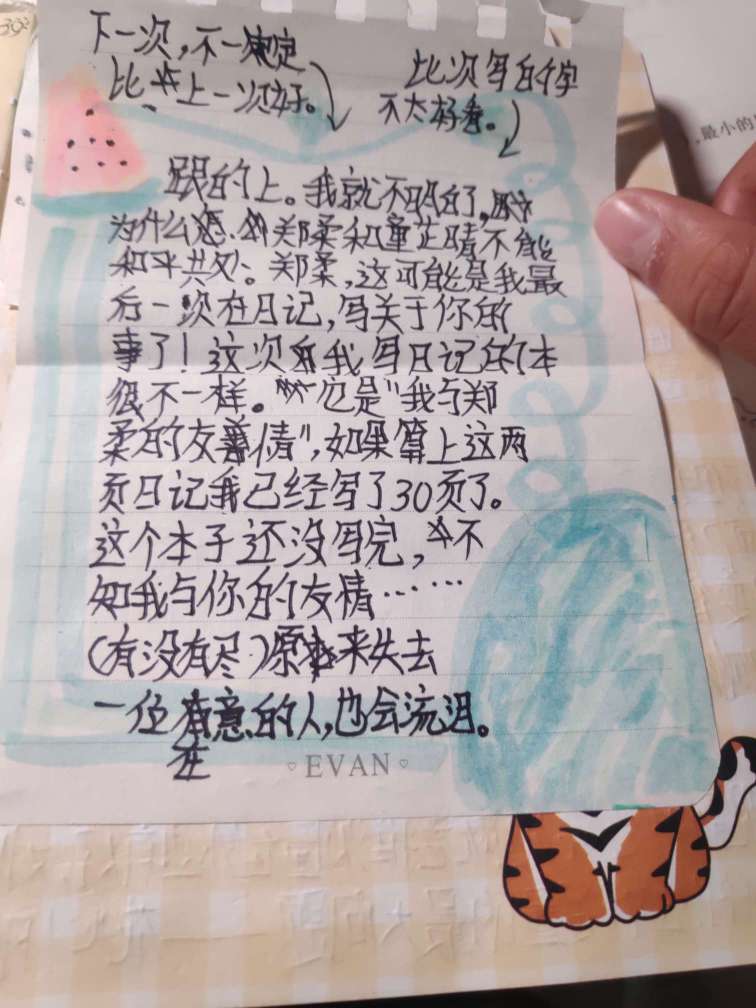 下一次,不一定
比上一次好。
此次写的字
不太好看。
跟的上。我就不明白了,
为什么 郑柔和童芷晴不能
和平共处。郑柔,这可能是我最
后一次在日记,写关于你的
事了!这次和我写日记的本
很不一样。它是"我与郑
柔的友善情",如果算上这两
页日记我已经写了30页了。
这个本子还没写完,不
知我与你的友情……
(有没有尽)原来失去
一位在意的人,也会流泪。
EVAN
最小的